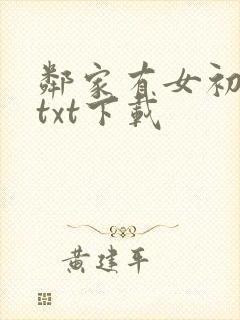 鄰家有女初
txt下載
黄建平